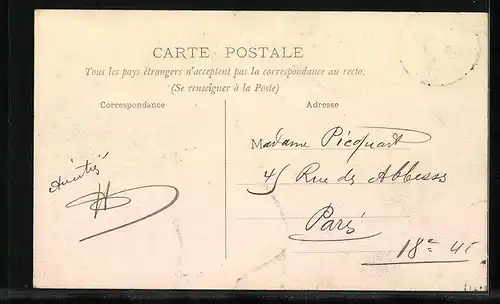 CARTE POSTALE
Tous les pays étrangers n'acceptent pas la correspondance au recto.
(Se renseigner à la Poste)
Correspondance
Adresse
Madame Picquart
45 Rue des Abbesses
Paris
18e
Amitiés